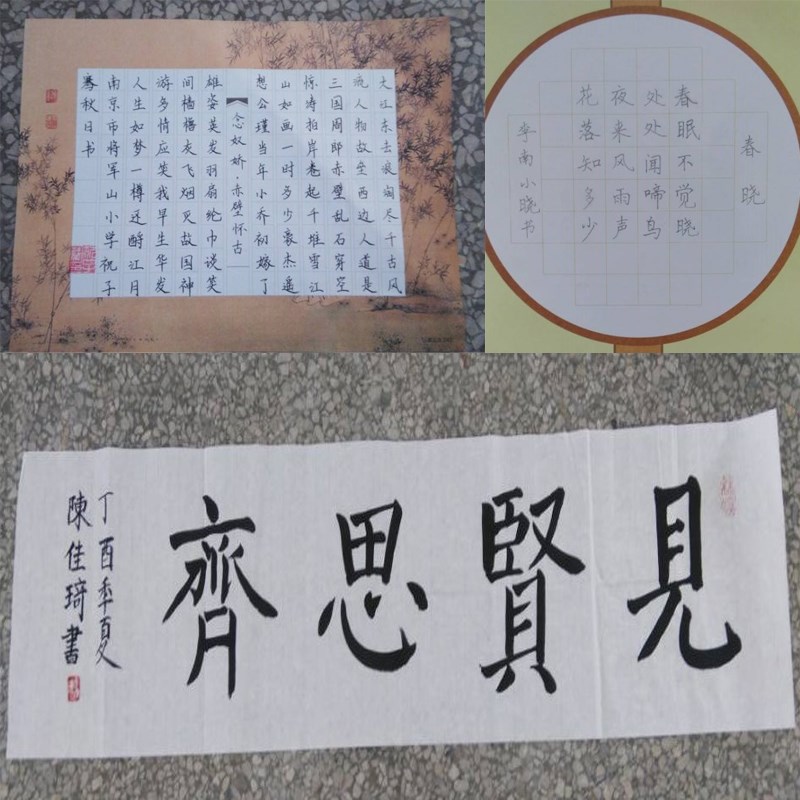 大江东去浪淘尽千古风
流人物故垒西边人道是
三国周郎赤壁乱石穿空
惊涛拍岸卷起千堆雪江
山如画一时多少豪杰遥
想公瑾当年小乔初嫁了
念奴娇·赤壁怀古
雄姿英发羽扇纶巾谈笑
间樯橹灰飞烟灭故国神
游多情应笑我早生华发
人生如梦一樽还酹江月
南京市将军山小学祝子
骞秋日书
春晓
春眠不觉晓
处处闻啼鸟
夜来风雨声
花落知多少
李南小晓书
見賢思齊
丁酉年夏
陳佳琦書